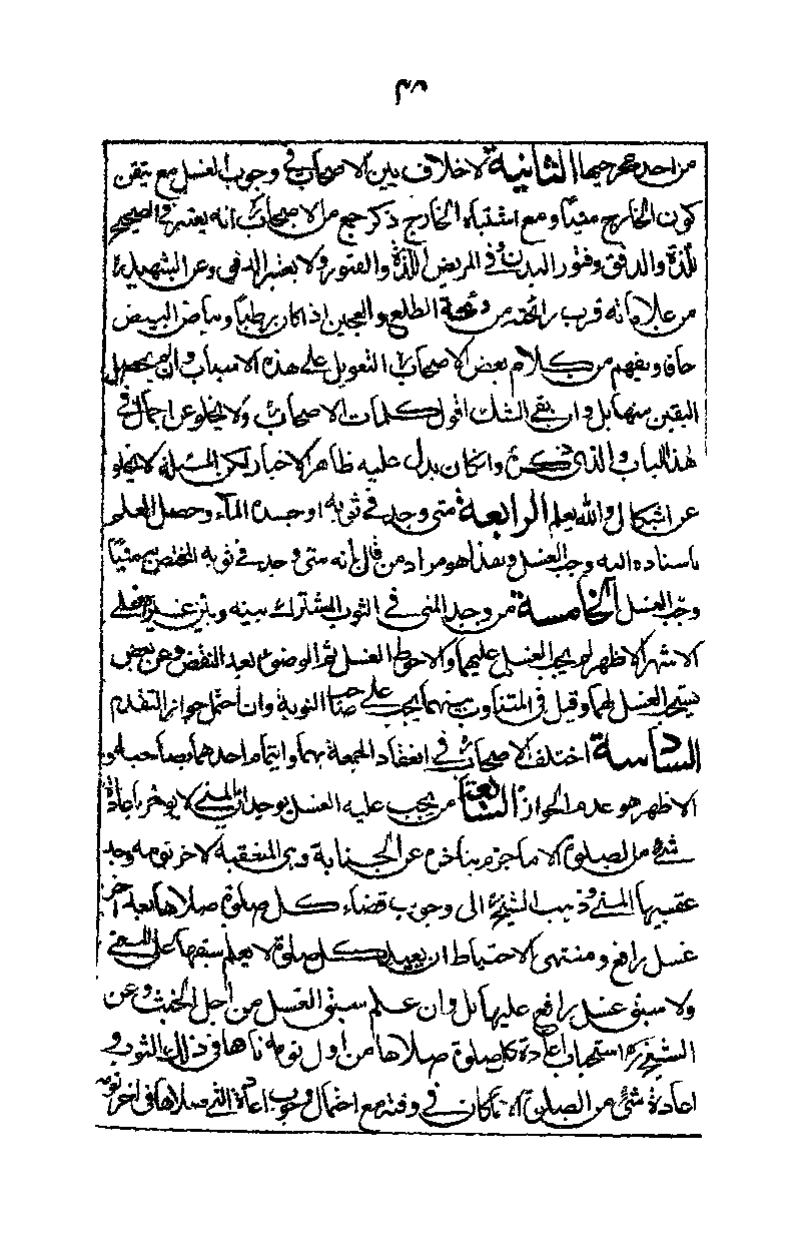 من احد مخرجيها الثانية لا خلاف بين الاصحاب في وجوب الغسل مع تيقن
كون الخارج منيا ومع اشتباه الخارج ذكر جمع من الاصحاب انه يعتبر في الصحيح
اللذة والدفق وفتور البدن وفي المريض اللذة والفتور ولا يعتبر الدفق وعن الشهيد
من علاماته قرب رائحته من رائحة الطلع والعجين اذا كان رطبا وبياض البيض
جافا ويفهم من كلام بعض الاصحاب التعويل على هذه الاسباب وان لم يحصل
اليقين منها بل وان بقي الشك اقول كلمات الاصحاب ولا يخلو عن اجمال في
هذا الباب والذي وان كان يدل عليه ظاهر الاخبار لكن المسئلة لا يخلو
عن اشكال والله يعلم الرابعة متى وجد في ثوبه او جسده الماء وحصل العلم
باسناده اليه وجب الغسل وهذا هو مراد من قال بأنه متى وجد في ثوبه المختص به منيا
وجب الغسل الخامسة من وجد المني في الثوب المشترك بينه وبين غيره فعلى
الاشهر الاظهر لم يجب الغسل عليهما والاحوط الغسل ثم الوضوء بعد النقض وعن بعض
يستحب الغسل لهما وقيل في المتناوب بينهما يجب على صاحب النوبة وان احتمل جواز التقدم
السادسة اختلف الاصحاب في انعقاد الجمعة بهما وايتمام احدهما بصاحبه و
الاظهر هو عدم الجواز السابعة من يجب عليه الغسل بوجدان المني لا يؤمر باعادة
شيء من الصلوة الا ما جزم بتأخره عن الجنابة وهي المتعقبة لاخر نومه وجد
عقيبها المني وذهب الشيخ الى وجوب قضاء كل صلوة صلاها بعد آخر
غسل رافع ومنتهى الاحتياط ان يعيد كل صلوة لا يعلم سبقها على المني
ولا سبق غسل رافع عليها بل وان علم سبق الغسل من اجل الخبث وعن
الشيخ استحباب اعادة كل صلوة صلاها من اول نومة نامها في ذلك الثوب و
اعادة شيء من الصلوة كان في وقته مع احتمال وجوب اعادة التي صلاها في اخر نومه